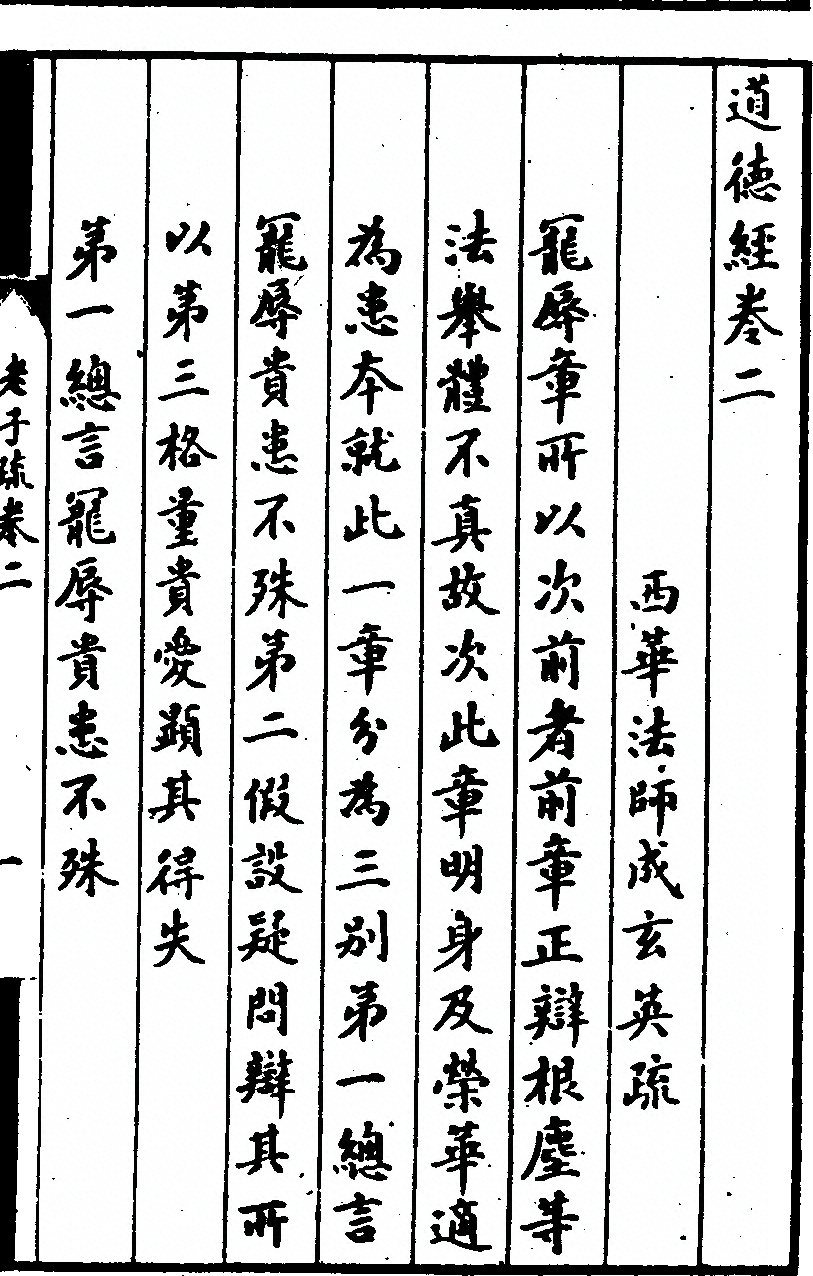 道德經卷二
西華法師成玄英疏
寵辱章所以次前者前章正辯根塵等
法舉體不真故次此章明身及榮華適
為患本就此一章分為三別第一總言
寵辱貴患不殊第二假設疑問辯其所
以第三格量貴愛顯其得失
第一總言寵辱貴患不殊
老子疏卷二
一